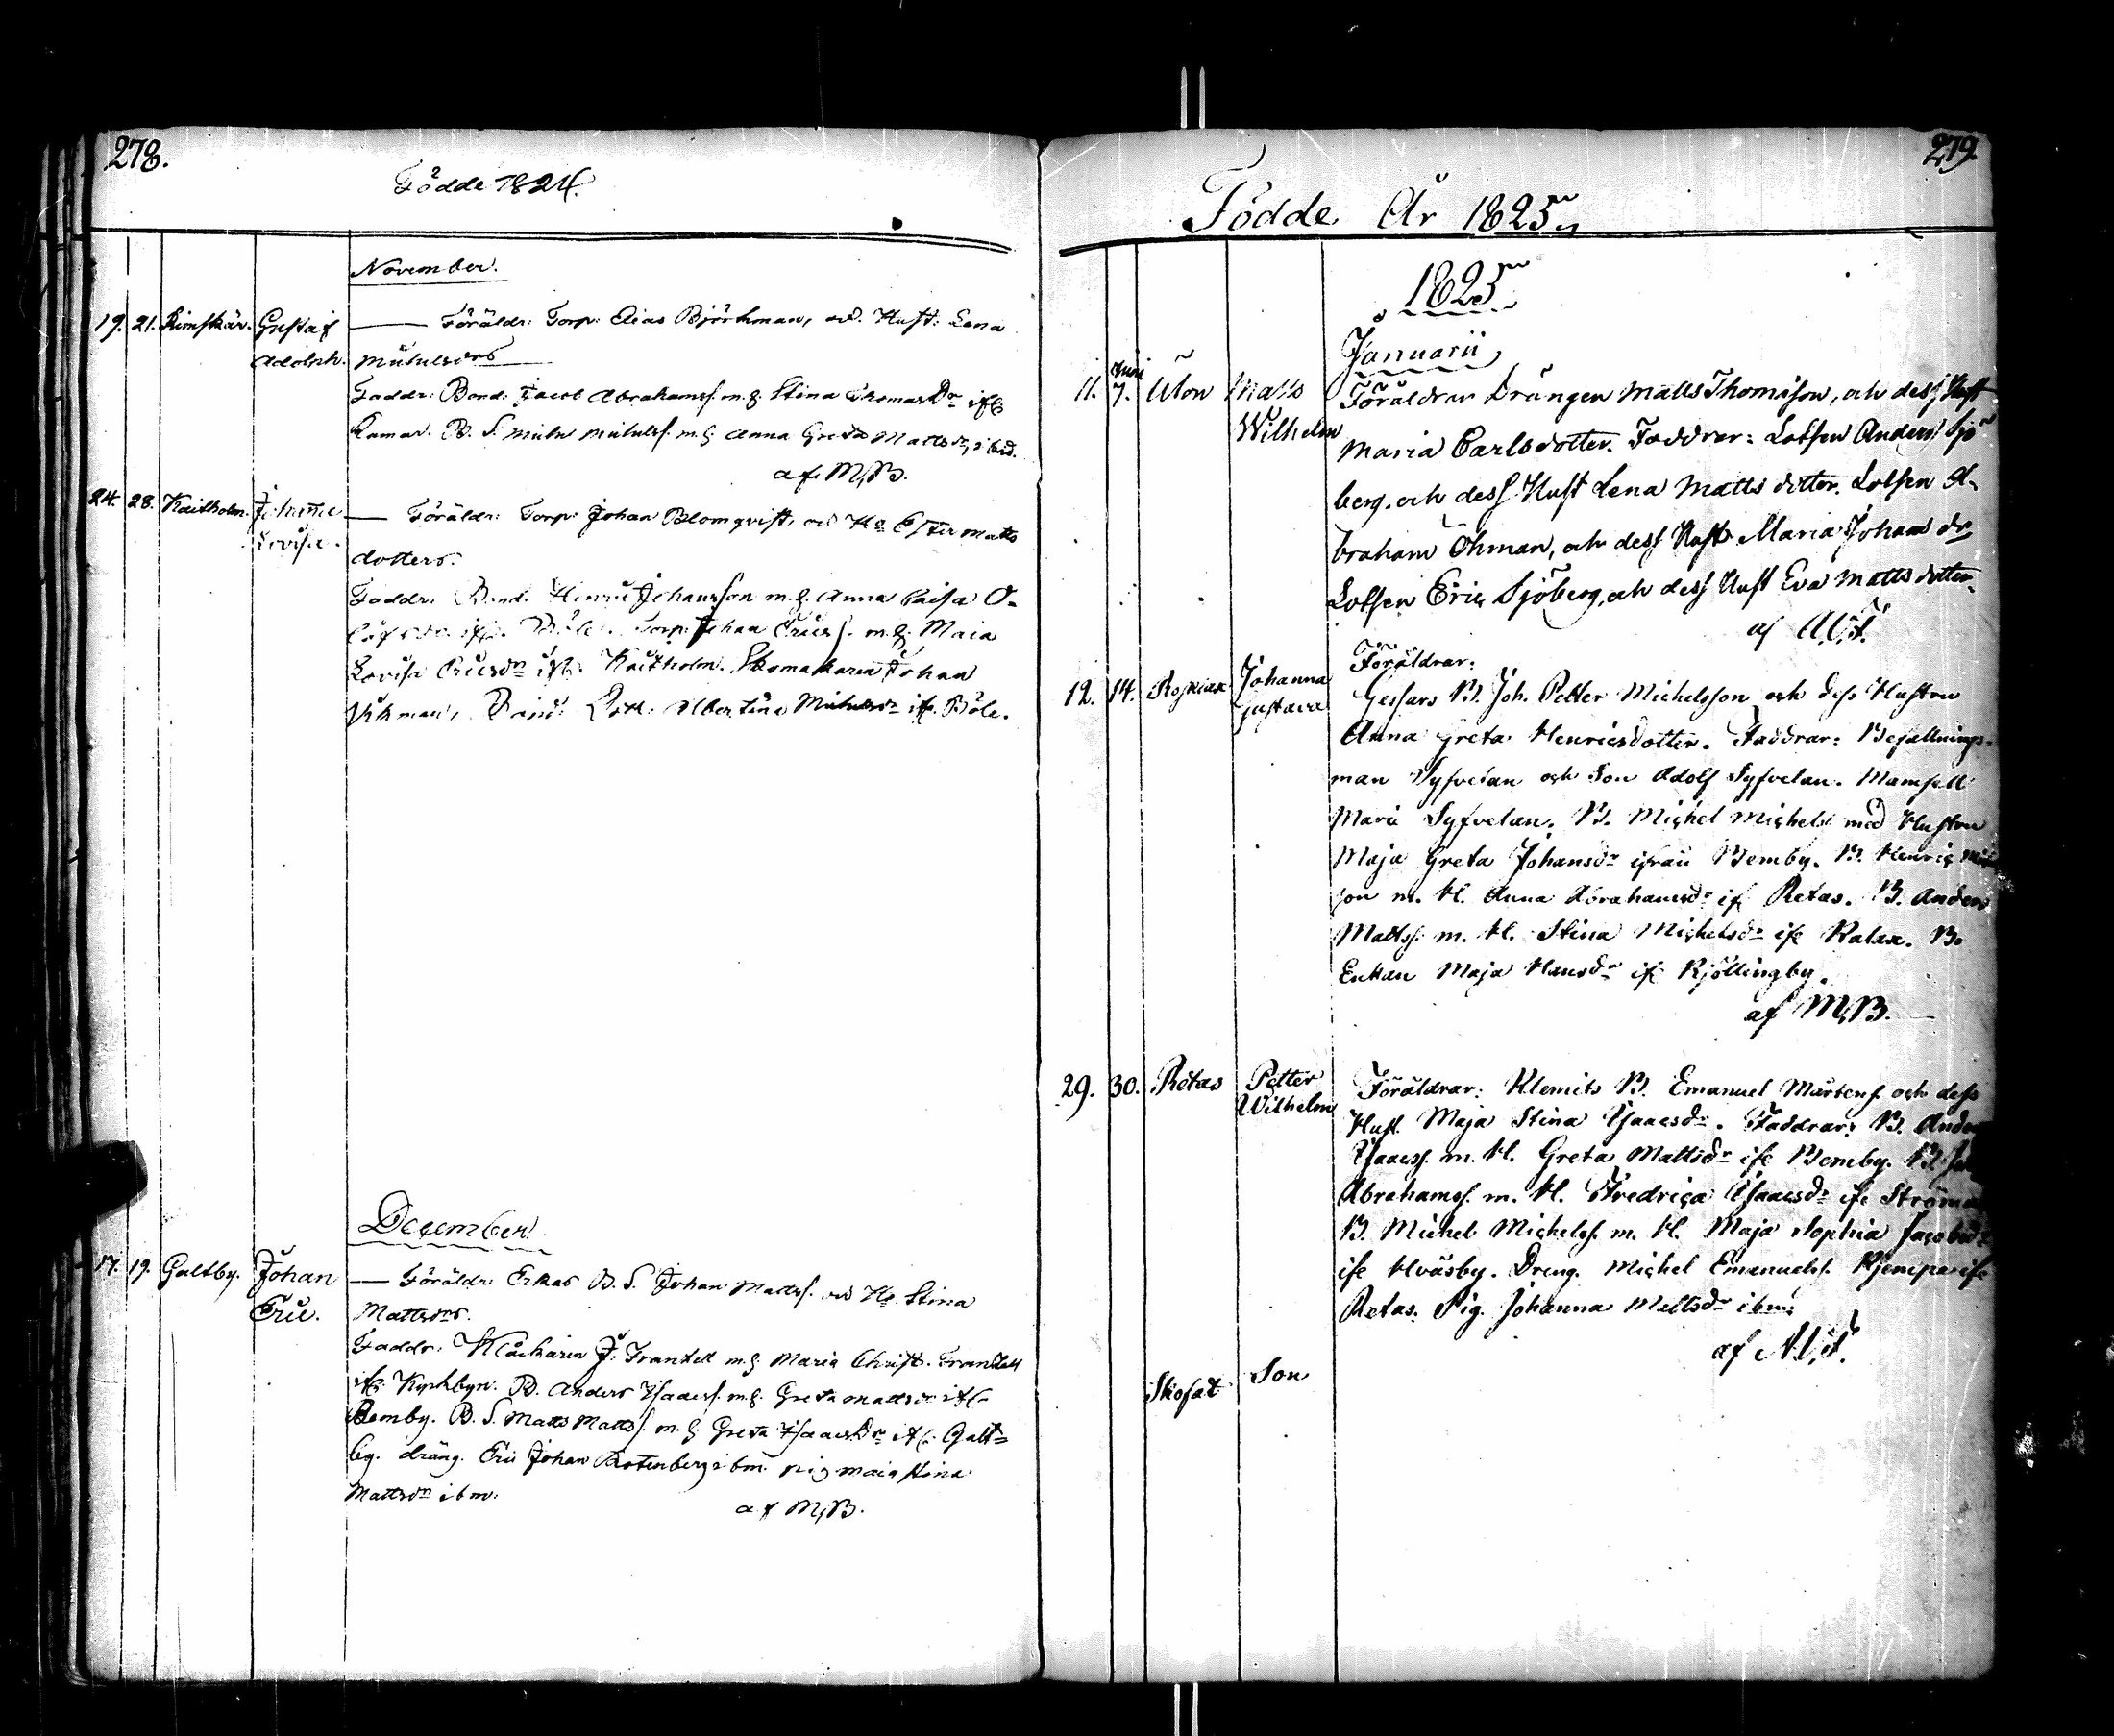 278.
Födde 1824.
November.
19. 21. Rimskär. Gustaf Adolph. — Föräldr: Torp: Elias Björkman, och Hust: Lena
Faddr: Bond: Jacob Abrahamss. m.h. Stina ThomasDr ifr
Ramar. B. S. m.h. Anna Greta Mattsdr ibid.
af M,B.
24. 28. Kaitholm. Lovisa. — Föräldr: Torp: Johan Blomqvist, och Ha Ester Matts
dotters.
Faddr: Bond. Henric Johansson m.h. Anna Caisa O-
Böle. Torp: Johan Ericss. m.h. Maia
Lovisa Ericsdr ifr. Kaitholm. Skomakaren Johan
Albertina ifr. Böle.
December.
17. 19. Galtby. Johan Eric. — Föräldr: Erkas B. S. Johan Mattss. och Ha Stina
Mattsdrs.
Faddr: Klåckaren J. Frantell m.h. Maria Christ. Frantell
ifr. Kyrkbyn. B. Anders Isaacss. m.h. Greta Mattsdr ifr.
Bemby. B. S. Matts Mattss. m.h. Greta IsaacsDr ifr. Galt=
by. dräng. Eric Johan Rotenberg ibm. pig Maia Stina
Mattsdr ibm.
af M,B.
279.
Födde År 1825.
1825.
Januarii
11. 7. Utön Matts Wilhelm Föräldrar Drängen Matts Thomsson, och dess Hust
Maria Carlsdotter. Faddrar: Lotsen Anders Sjö
berg, och dess Hust Lena Mattsdotter. Lotsen A-
braham Öhman, och dess Hust. Maria Johansdr
Lotsen Eric Sjöberg, och dess Hust Eva Mattsdotter.
af
Föräldrar:
12. 14. Johanna Gustava B. Joh. Petter Michelsson och dess Hustru
Anna Greta Henricsdotter. Faddrar: Befallnings-
man Syfvelan och Son Adolf Syfvelan. Mamsell
Mari Syfvelan. B. Michel Michels. med Hustru
Maja Greta Johansdr ifrån Bemby. B. Henric
son m. H. Anna Abrahamsdr if. Retas. B. Anders
Mattss. m. H. Stina Michelsdr ifr. Kalax. B.
Enkan Maja Hansdr ifr. Kjöllingby.
af M,B.
29. 30. Retas Petter Wilhelm Föräldrar: Klemits B. Emanuel Mårtens. och dess
Hust. Maja Stina Isaacsdr. Faddrar: B.
Isaacss. m. H. Greta Mattsdr ifr Bemby. B.
Abrahamss. m. H. Fredrica Isaacsdr ifr
B. Michel Michelss. m. H. Maja Sophia
ifr Hväsby. Dreng. Michel Emanuelss. Kjempe ifr
Retas. Pig. Johanna Mattsdr ibm:
af
Son